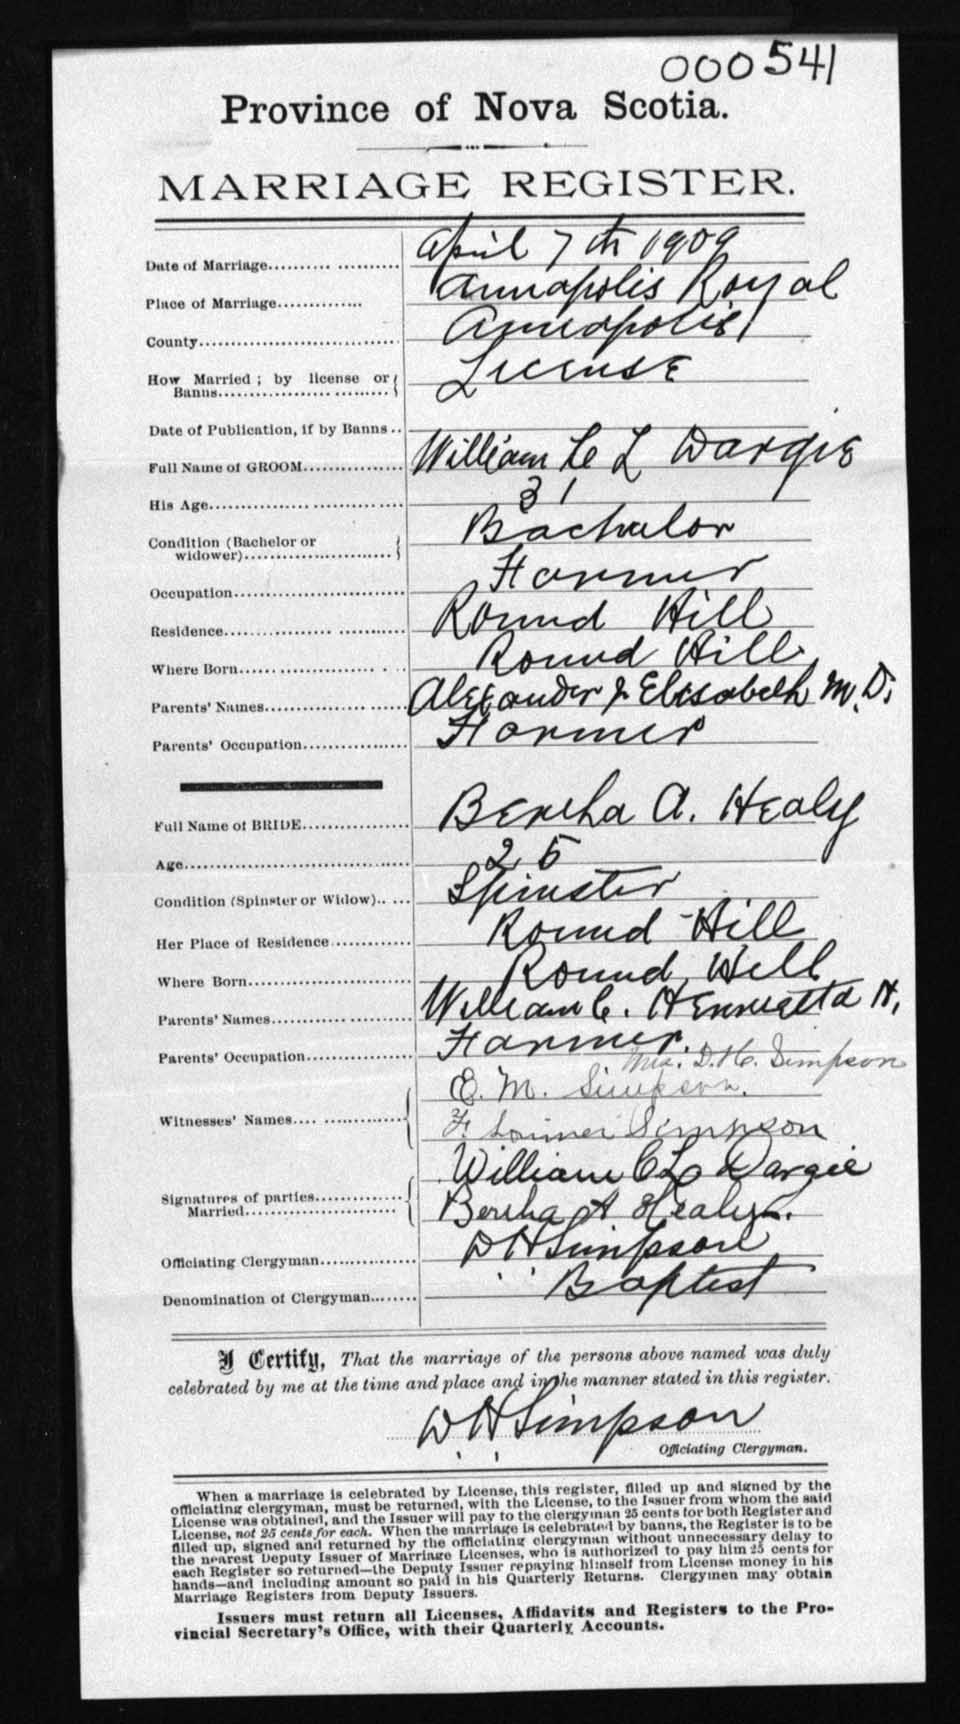 000541
Province of Nova Scotia.
MARRIAGE REGISTER.
Date of Marriage.................. April 7th 1909
Place of Marriage.............. Annapolis Royal
County................................. Annapolis
How Married ; by license or { License
Banns...............................
Date of Publication, if by Banns ..
Full Name of GROOM................ William C L Dargie
His Age................................ 31
Condition (Bachelor or } Bachelor
widower)........................
Occupation............................ Farmer
Residence............................. Round Hill
Where Born........................... Round Hill
Parents' Names...................... Alexander & Elisabeth M. D.
Parents' Occupation................. Farmer
Full Name of BRIDE................. Bertha A. Healy
Age...................................... 25
Condition (Spinster or Widow)...... Spinster
Her Place of Residence............. Round Hill
Where Born........................... Round Hill
Parents' Names...................... William C. Henrietta H.
Parents' Occupation................ Farmer.
Mrs. D. H. Simpson
Witnesses' Names.................. { E. M. Simpson.
F. Lorimer Simpson
Signatures of parties............... { William C L Dargie
Married........................... Bertha A Healy.
Officiating Clergyman............... D H Simpson
Denomination of Clergyman........ Baptist
I Certify, That the marriage of the persons above named was duly
celebrated by me at the time and place and in the manner stated in this register.
D H Simpson
Officiating Clergyman.
When a marriage is celebrated by License, this register, filled up and signed by the
officiating clergyman, must be returned, with the License, to the Issuer from whom the said
License was obtained, and the Issuer will pay to the clergyman 25 cents for both Register and
License, not 25 cents for each. When the marriage is celebrated by banns, the Register is to be
filled up, signed and returned by the officiating clergyman without unnecessary delay to
the nearest Deputy Issuer of Marriage Licenses, who is authorized to pay him 25 cents for
each Register so returned—the Deputy Issuer repaying himself from License money in his
hands—and including amount so paid in his Quarterly Returns. Clergymen may obtain
Marriage Registers from Deputy Issuers.
Issuers must return all Licenses, Affidavits and Registers to the Pro-
vincial Secretary's Office, with their Quarterly Accounts.